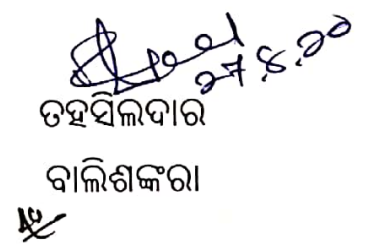 27.8.20
ତହସିଲଦାର
ବାଲିଶଙ୍କରା